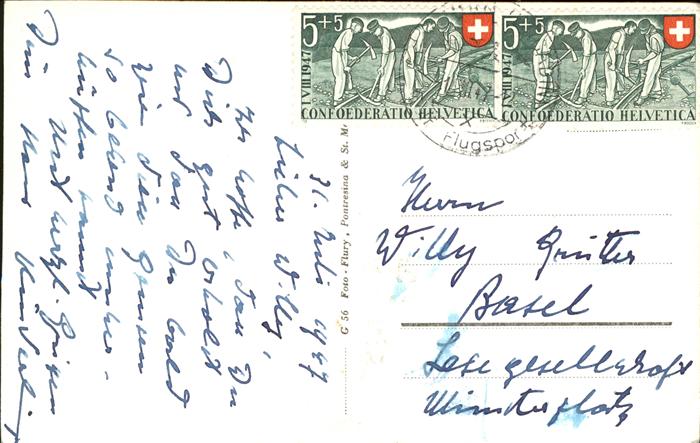 5+5 5+5
1 VIII 1947 1 VIII 1947
CONFOEDERATIO HELVETICA CONFOEDERATIO HELVETICA
Flugsport
31. Juli 1947
Lieber Willy,
Ich hoffe, dass Du
Dich gut erholst
und dass Du bald
wie diese Gemsen
so behend umher-
hüpfen kannst.
Und herzl.
Dein Hans
G 56 Foto-Flury, Pontresina & St. M
Herrn
Willy
Basel
Lesegesellschaft
Münsterplatz